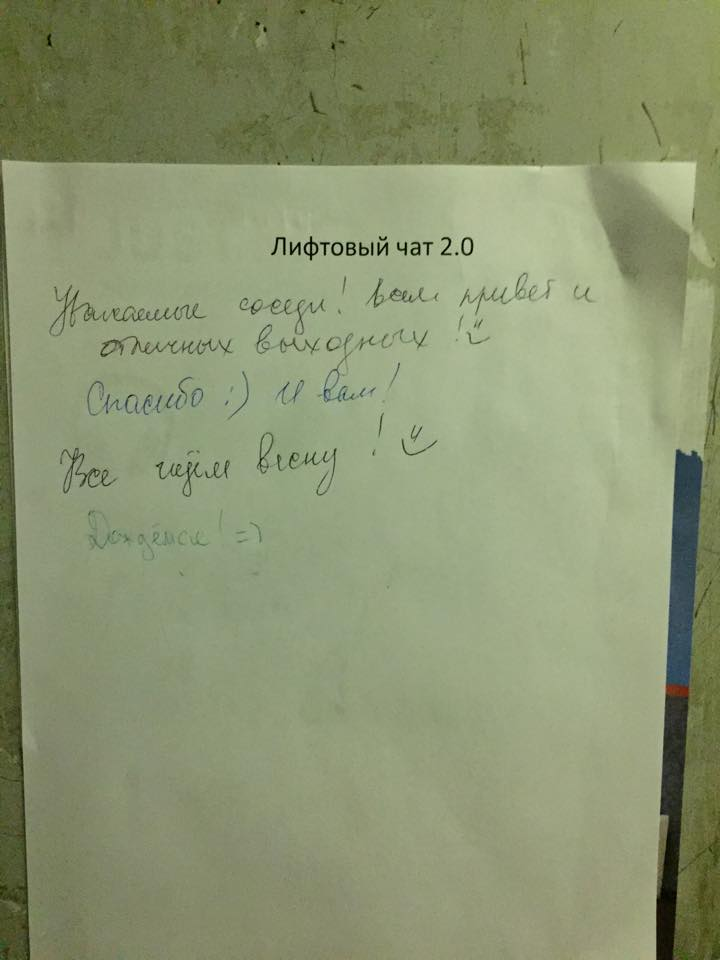 Лифтовый чат 2.0
Уважаемые соседи! Всем привет и
отличных выходных!
Спасибо :) И вам!
Все ждём весну!
Дождёмся! =)